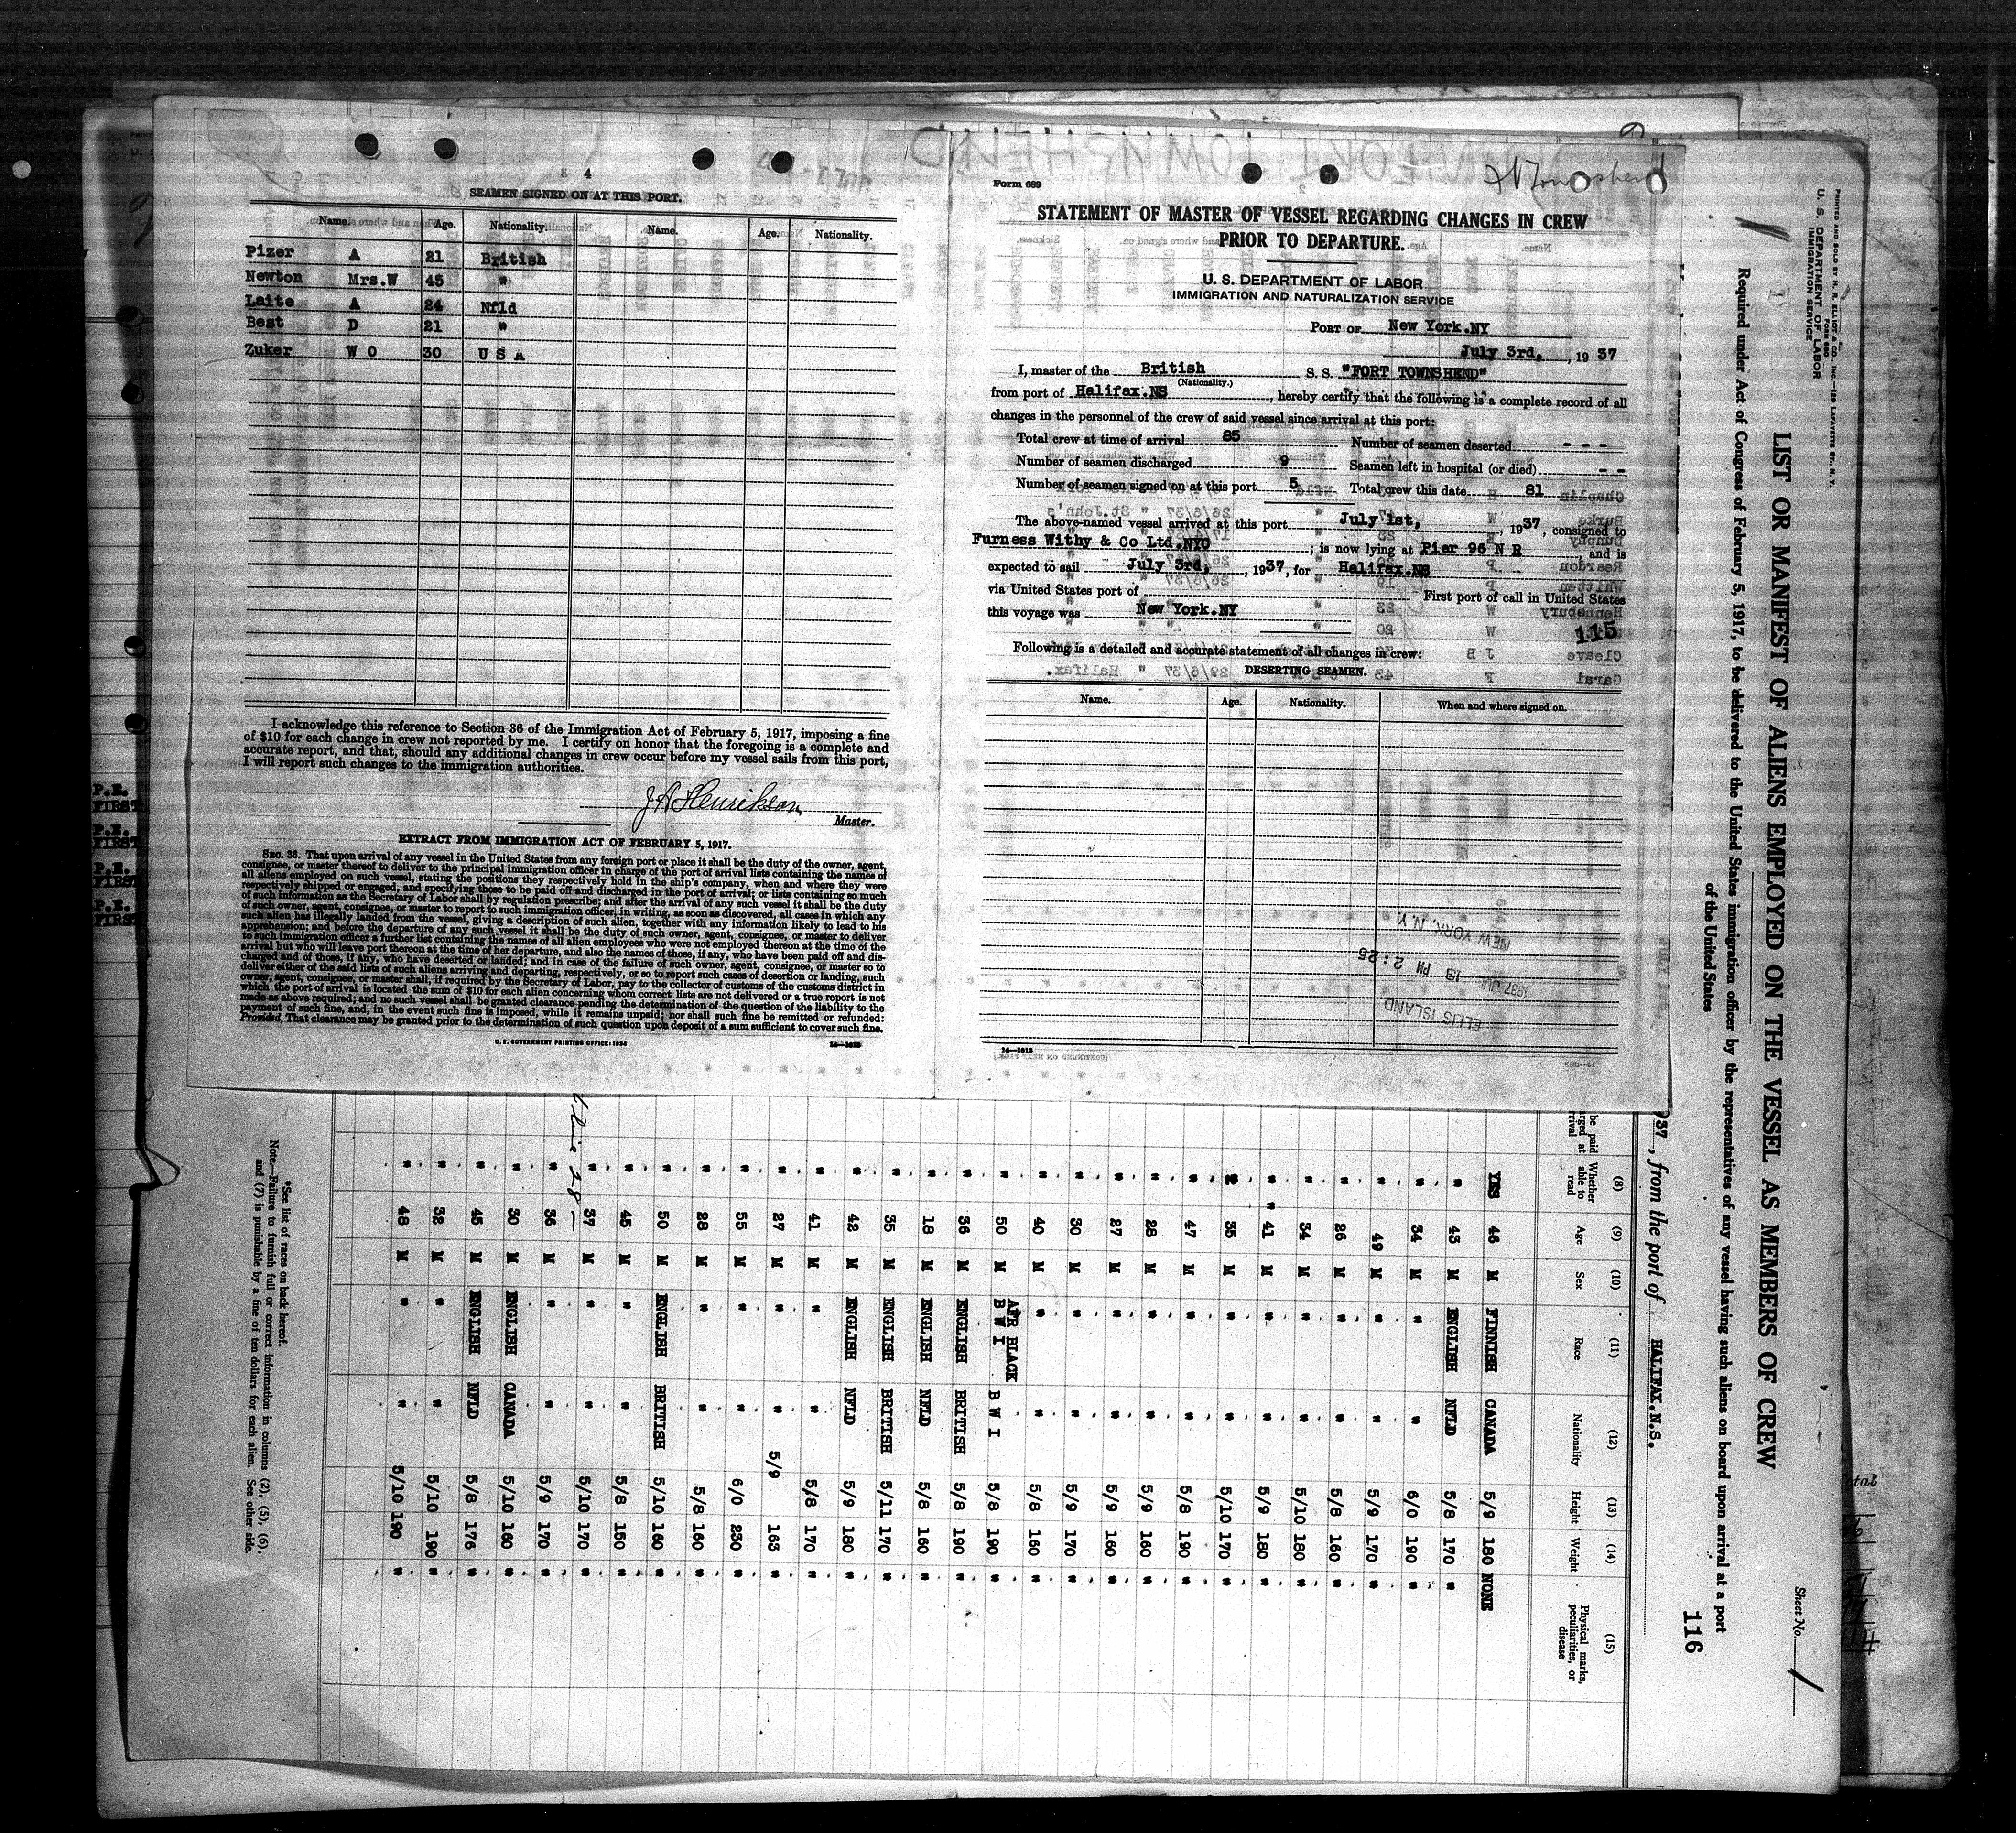 4
SEAMEN SIGNED ON AT THIS PORT.
Name. Age. Nationality. Name. Age. Nationality.
Pizer A 21 British
Newton Mrs.W 45 "
Laite A 24 Nfld
Best D 21 "
Zuker W O 30 U S A
I acknowledge this reference to Section 36 of the Immigration Act of February 5, 1917, imposing a fine
of $10 for each change in crew not reported by me. I certify on honor that the foregoing is a complete and
accurate report, and that, should any additional changes in crew occur before my vessel sails from this port,
I will report such changes to the immigration authorities.
Master.
EXTRACT FROM IMMIGRATION ACT OF FEBRUARY 5, 1917.
SEC. 36. That upon arrival of any vessel in the United States from any foreign port or place it shall be the duty of the owner, agent,
consignee, or master thereof to deliver to the principal immigration officer in charge of the port of arrival lists containing the names of
all aliens employed on such vessel, stating the positions they respectively hold in the ship's company, when and where they were
respectively shipped or engaged, and specifying those to be paid off and discharged in the port of arrival; or lists containing so much
of such information as the Secretary of Labor shall by regulation prescribe; and after the arrival of any such vessel it shall be the duty
of such owner, agent, consignee, or master to report to such immigration officer, in writing, as soon as discovered, all cases in which any
such alien has illegally landed from the vessel, giving a description of such alien, together with any information likely to lead to his
apprehension; and before the departure of any such vessel it shall be the duty of such owner, agent, consignee, or master to deliver
to such immigration officer a further list containing the names of all alien employees who were not employed thereon at the time of the
arrival but who will leave port thereon at the time of her departure, and also the names of those, if any, who have been paid off and dis-
charged and of those, if any, who have deserted or landed; and in case of the failure of such owner, agent, consignee, or master so to
deliver either of the said lists of such aliens arriving and departing, respectively, or so to report such cases of desertion or landing, such
owner, agent, consignee, or master shall, if required by the Secretary of Labor, pay to the collector of customs of the customs district in
which the port of arrival is located the sum of $10 for each alien concerning whom correct lists are not delivered or a true report is not
made as above required; and no such vessel shall be granted clearance pending the determination of the question of the liability to the
payment of such fine, and, in the event such fine is imposed, while it remains unpaid; nor shall such fine be remitted or refunded:
Provided, That clearance may be granted prior to the determination of such question upon deposit of a sum sufficient to cover such fine.
U. S. GOVERNMENT PRINTING OFFICE: 1934
Form 689
STATEMENT OF MASTER OF VESSEL REGARDING CHANGES IN CREW
PRIOR TO DEPARTURE.
U. S. DEPARTMENT OF LABOR
IMMIGRATION AND NATURALIZATION SERVICE
PORT OF New York.NY
July 3rd, , 19 37
I, master of the British S. S. "FORT TOWNSHEND"
(Nationality.)
from port of Halifax.NS , hereby certify that the following is a complete record of all
changes in the personnel of the crew of said vessel since arrival at this port:
Total crew at time of arrival 85 Number of seamen deserted - - -
Number of seamen discharged 9 Seamen left in hospital (or died) - -
Number of seamen signed on at this port 5 Total crew this date 81
The above-named vessel arrived at this port July 1st, , 1937, consigned to
Furness Withy & Co Ltd.NYC ; is now lying at Pier 96 N R and is
expected to sail July 3rd, , 1937, for Halifax.NS
via United States port of First port of call in United States
this voyage was New York.NY
115
Following is a detailed and accurate statement of all changes in crew:
DESERTING SEAMEN.
Name. Age. Nationality. When and where signed on.
ELLIS ISLAND
13 PM 2:25
NEW YORK, N.Y.
14—1815
P.E.
FIRST
P.E.
FIRST
P.E.
FIRST
P.E.
FIRST
PRINTED AND SOLD BY H. R. ELLIOT & CO. INC.
FORM 680
U. S. DEPARTMENT OF LABOR
IMMIGRATION SERVICE
LIST OR MANIFEST OF ALIENS EMPLOYED ON THE VESSEL AS MEMBERS OF CREW
Sheet No. 1
Required under Act of Congress of February 5, 1917, to be delivered to the United States immigration officer by the representatives of any vessel having such aliens on board upon arrival at a port
of the United States
116
937, from the port of HALIFAX.N.S.
(8) (9) (10) (11) (12) (13) (14) (15)
Whether able to read Age Sex Race Nationality Height Weight Physical marks, peculiarities, or disease
YES 46 M FINNISH CANADA 5/9 180 NONE
" 43 M ENGLISH NFLD 5/8 170 "
" 34 M " " 6/0 190 "
" 49 M " " 5/9 170 "
" 26 M " " 5/8 160 "
" 34 M " " 5/10 180 "
" 41 M " " 5/9 180 "
" 35 M " " 5/10 170 "
" 47 M " " 5/8 190 "
" 28 M " " 5/9 160 "
" 27 M " " 5/9 160 "
" 30 M " " 5/9 170 "
" 40 M " " 5/8 160 "
AFR BLACK
" 50 M B W I B W I 5/8 190 "
" 36 M ENGLISH BRITISH 5/8 190 "
" 18 M ENGLISH NFLD 5/8 160 "
" 35 M ENGLISH BRITISH 5/11 170 "
" 42 M ENGLISH NFLD 5/9 180 "
" 41 M " " 5/8 170 "
" 27 M " " 5/9 163 "
" 55 M " " 6/0 230 "
" 28 M " " 5/8 160 "
" 50 M ENGLISH BRITISH 5/10 160 "
" 45 M " " 5/8 150 "
" 37 M " " 5/10 170 "
" 36 M " " 5/9 170 "
" 30 M ENGLISH CANADA 5/10 160 "
" 45 M ENGLISH NFLD 5/8 176 "
" 32 M " " 5/10 190 "
" 48 M " " 5/10 190 "
*See list of races on back hereof.
Note—Failure to furnish full or correct information in columns (2), (5), (6),
and (7) is punishable by a fine of ten dollars for each alien. See other side.